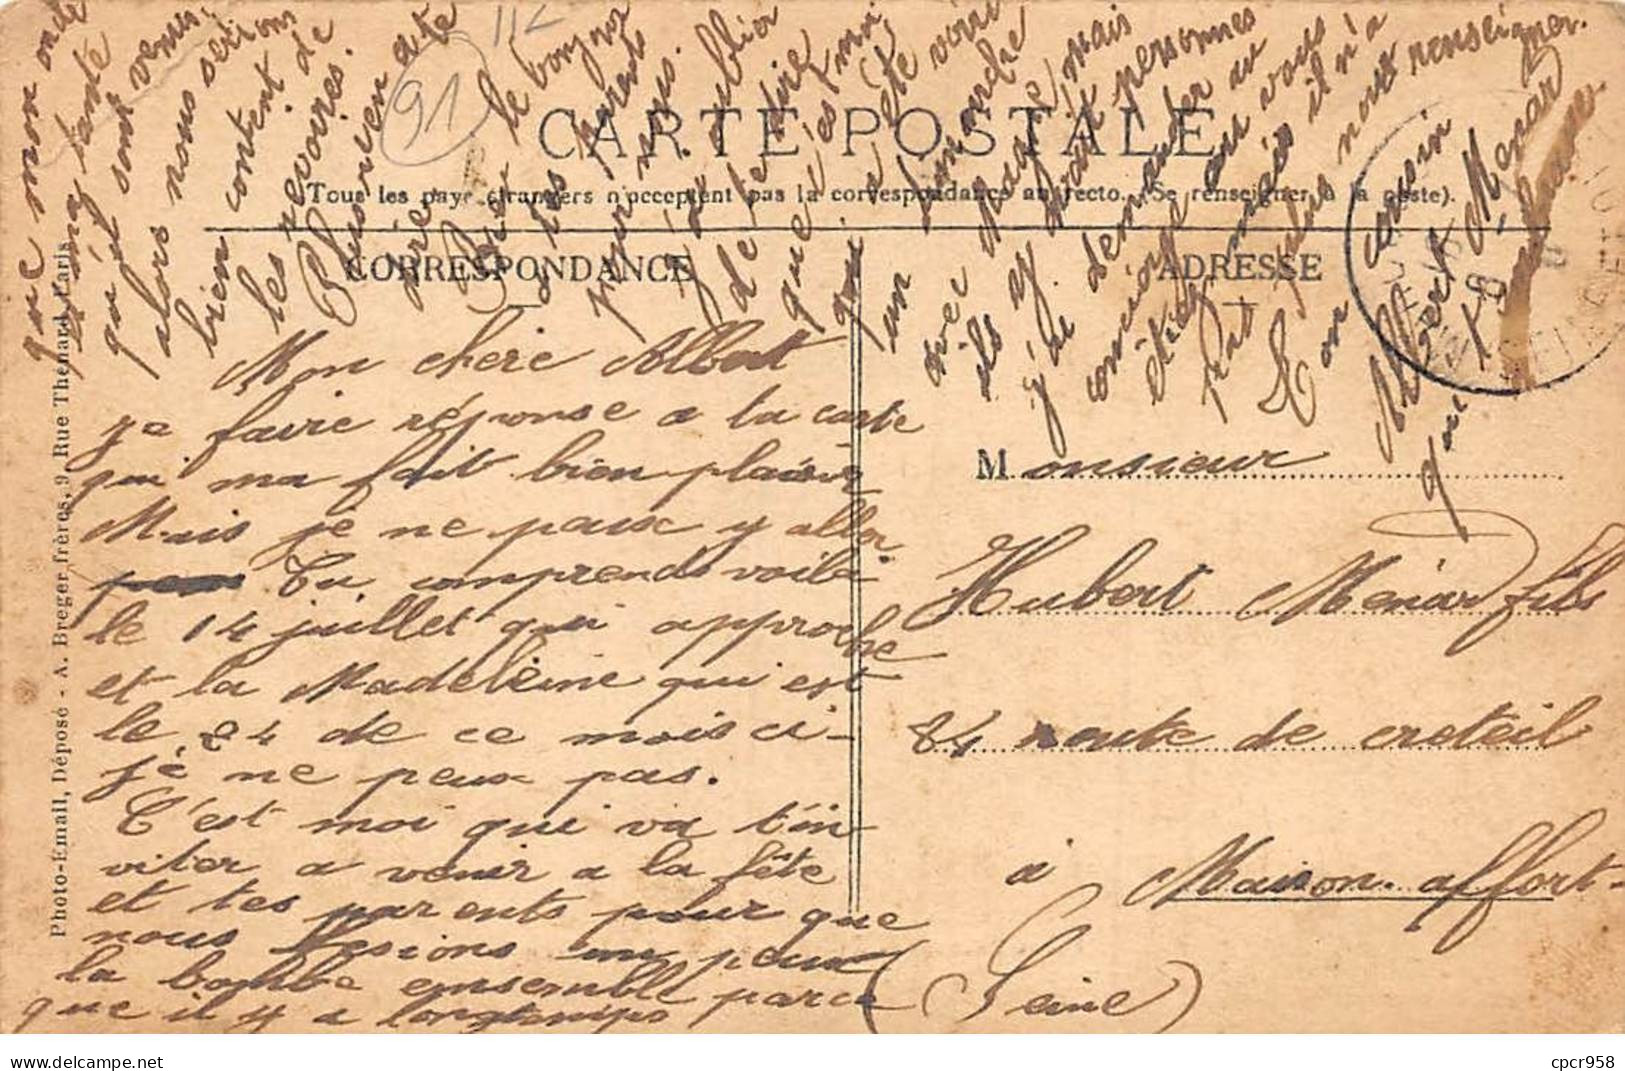 CARTE POSTALE
Tous les pays étrangers n'acceptent pas la correspondance au recto. (Se renseigner à la poste).
CORRESPONDANCE
ADRESSE
Photo-Email, Déposé - A. Breger frères, 9, Rue Thénard, Paris
91
112
Mon chere Albert
je faire réponse a la carte
qui ma fait bien plaisir
Mais je ne peux y aller
Tu comprends voila
le 14 juillet qui approche
et la Madeleine qui est
le 24 de ce mois ci
je ne peux pas.
C'est moi qui va t'in
viter a venir a la fête
et tes parents pour que
nous fesions un peux
la bombe ensemble parce
que il y a longtemps
que mon oncle
et ma tante
qu'il sont venus,
alors nous serions
bien content de
les revoires.
Plus rien a te
dire
Bien le bonjour
a tes parents
pour nous.
j'ai oublier
de te dire
que c'es moi
qui a été voire
un dimanche
avec Mais
ils y avait personnes
j'ai demander au
concierge ou vous
étiez mais il n'a
pas pulus nous renseigner.
Ton cousin
Albert Menard
qui
Monsieur
Hubert Ménard fils
84 route de creteil
à Maison-affort-
(Seine)
cpcr958